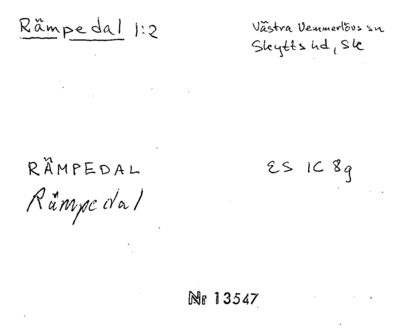 Rämpedal 1:2
Västra Vemmerlövs sn
Skytts hd, Sk
RÄMPEDAL
Rämpedal
ES 1C 8g
Nr 13547